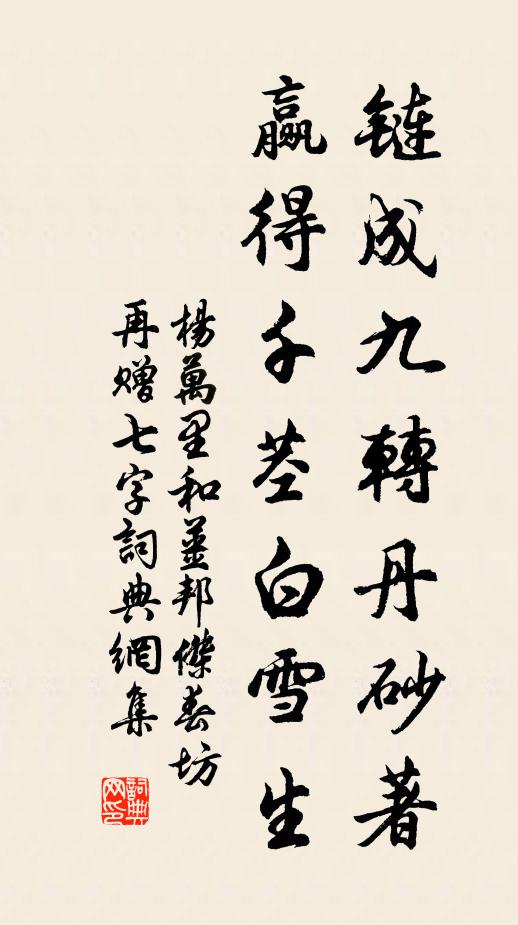 鏈成九轉丹砂著
贏得千茎白雪生
楊萬里和薑邦傑春坊
再贈七字詞典網集
詞典
网印